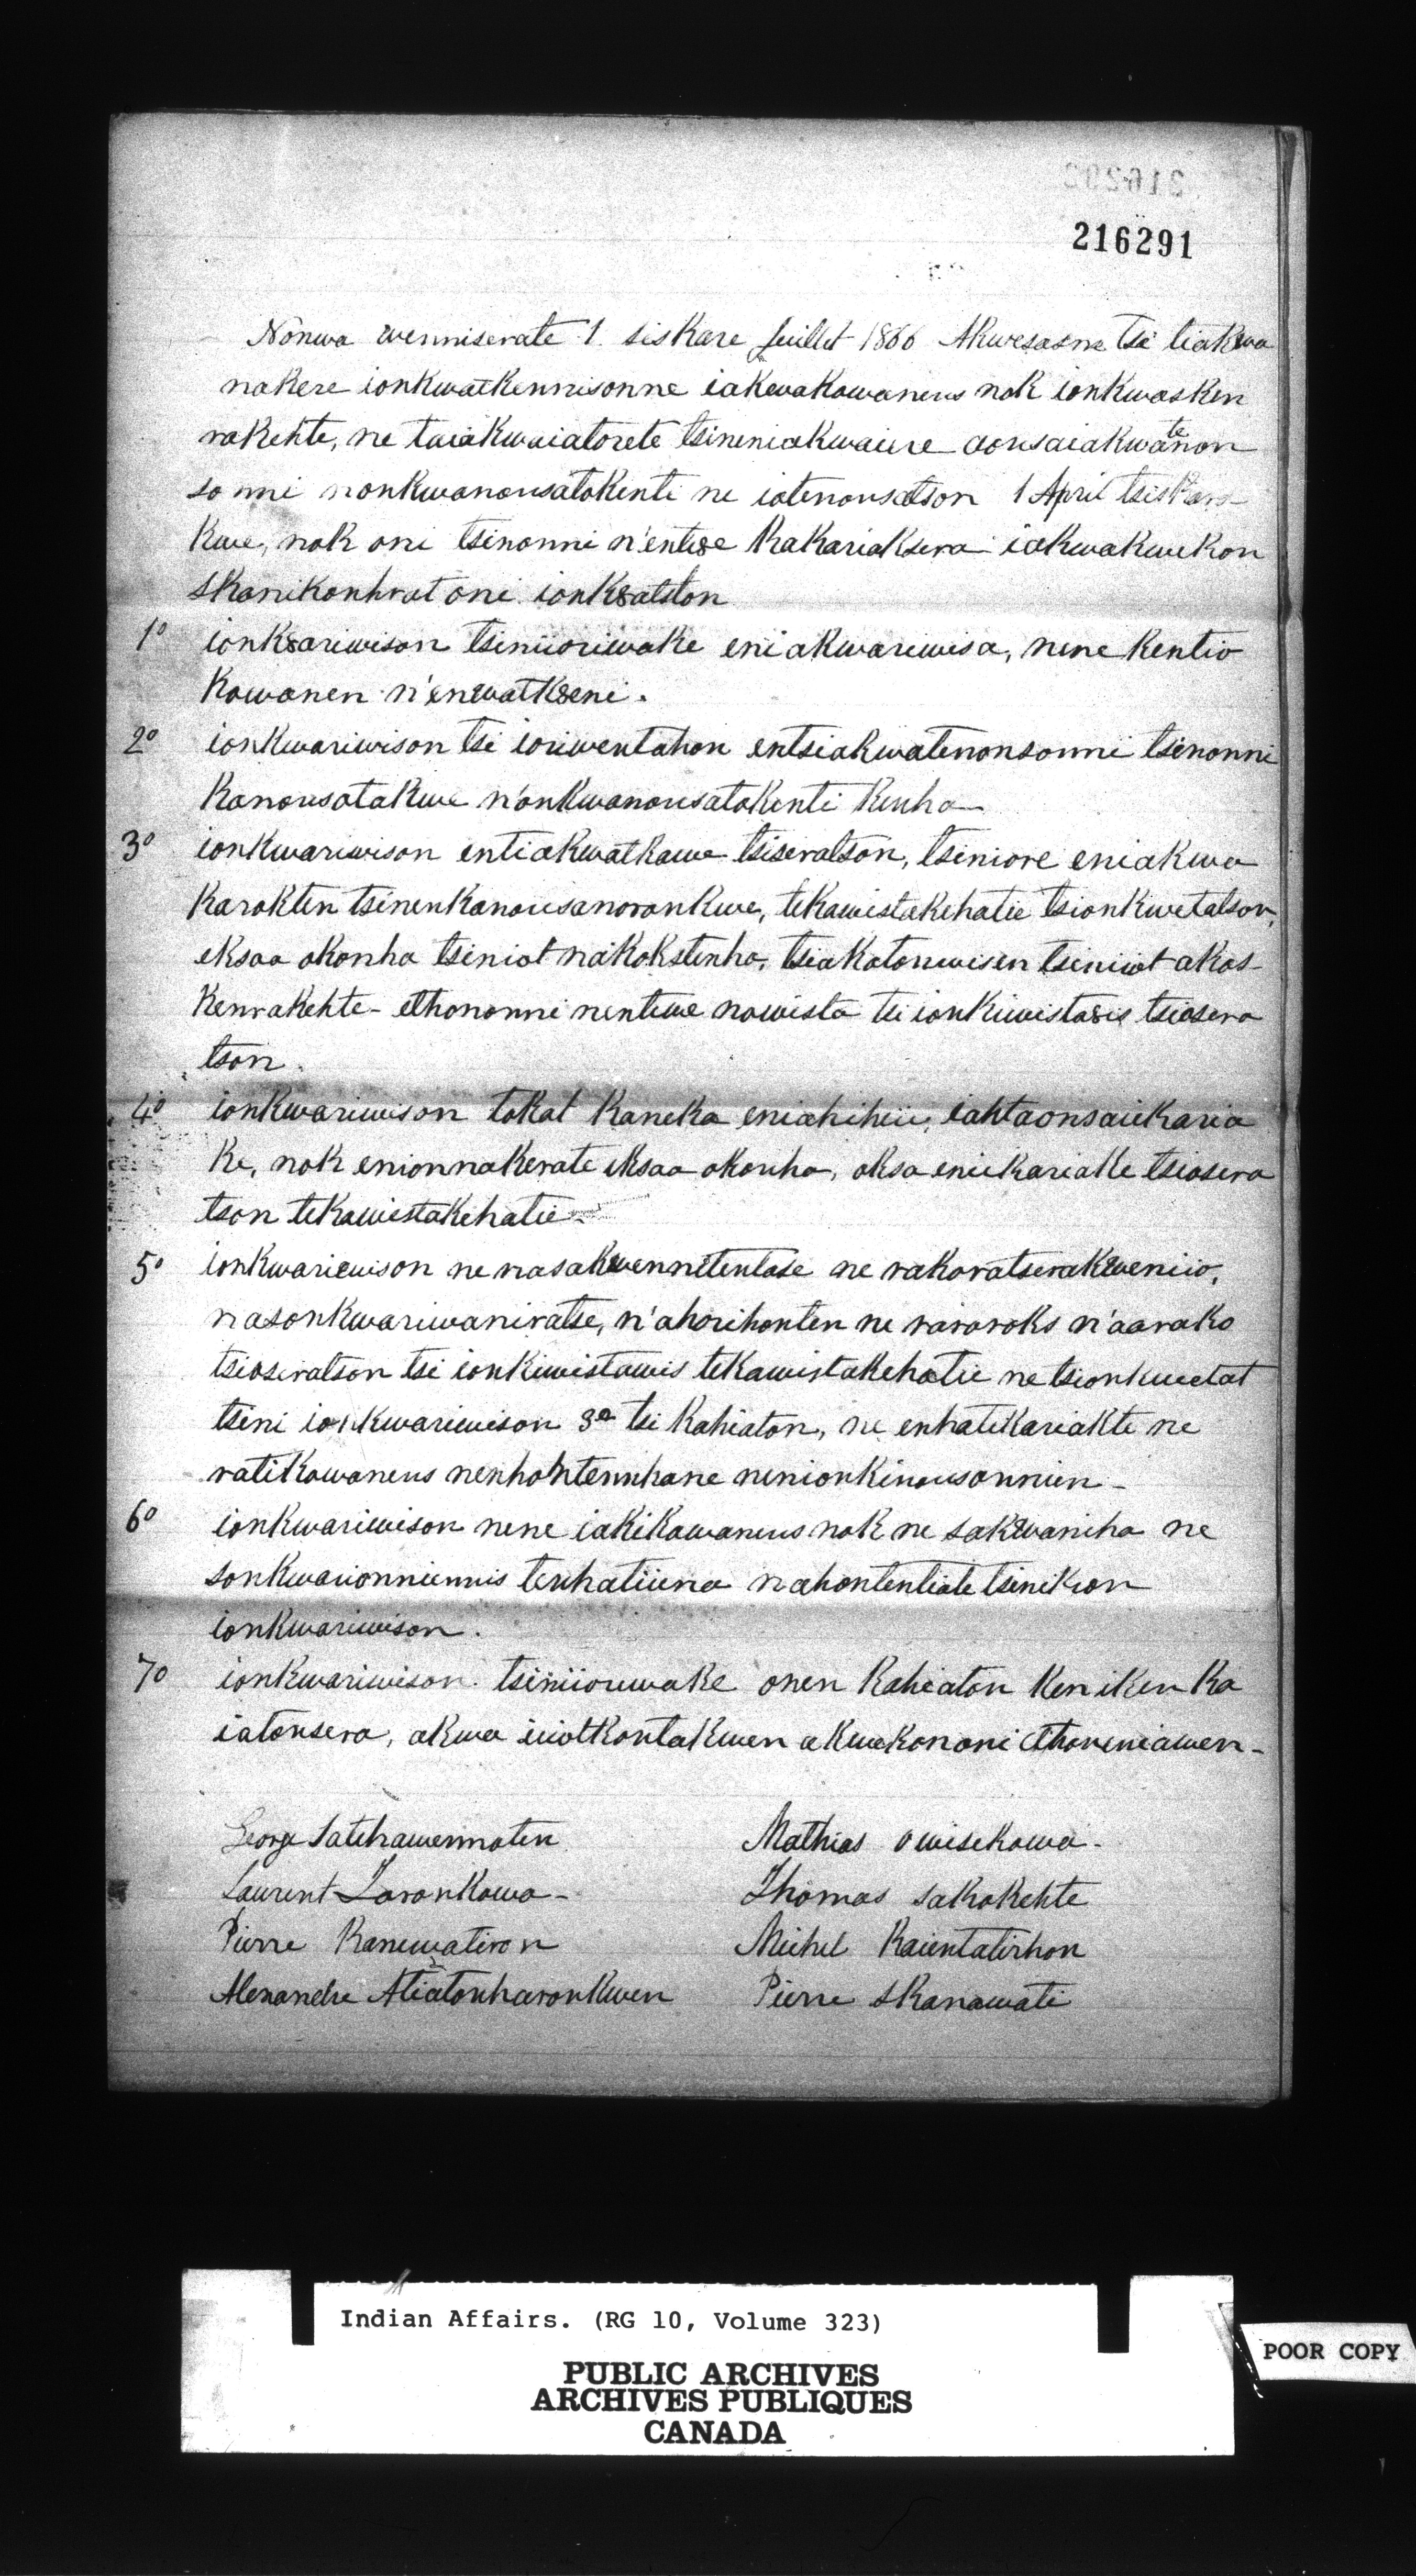 216291
Nonwa wenniserate 1. siskare Juillet 1866 Akwesasne tsi tiakwa
nakere ionkwatkennisonne iakwakowanens nok ionkwasken
rakehte, ne taiakwaiatorete tsineniakwaiere aonsaiakwatenon
sonni nonkwanonsatokenti ne iotenonsatson 1 April tsiskare
kwe, nok oni tsinonni n'entewe kakariaksera iakwakwekon
skanikonhrat oni ionk8atston
1º ionk8ariwison tsiniioriwake eniakwariwisa, nene kentio
kowanen n'enwatk8eni.
2º ionkwariwison tsi ioriwentahon entsiakwatenonsonni tsinonni
kanonsotakwe n'onkwanonsatokenti kenha
3º ionkwariwison entiakwatkawe tsiseratson, tseniore eniakwa
karokten tsinenkanonsanoronkwe, tekawistakehatie tsionkwetatson,
eksaa okonha tseniot nakokstenha, tsiakatonwisen tseniiot akos-
kenrakehte - ethononni nentewe nowista tsi ionkiwista8is tsiosera
tson.
4º ionkwariwison tokat kaneka eniahiheii, iahtaonsaiekaria
ke, nok enionnakerate eksaa okonha, oksa eniekariake tsiosera
tson tekawistakehatie
5º ionkwariwison ne nasakwennitentase ne rakoratserakweniio,
nasonkwariwaniratse, n'ahorihonten ne raroroks n'aarako
tsioseratson tsi ionkiwistawis tekawistakehatie ne tsionkwetat
tsini ionkwariwison 3º tsi kahiaton, ne enhatikariakte ne
ratikowanens nenhohtennhane nenionkinonsonnien -
6º ionkwariwison nene iakikowanens nok ne sakwaniha ne
sonkwarionniennis tenhatiiena nahontentiate tsinikon
ionkwariwison.
7º ionkwariwison tsiniioriwake onen kahiaton keniken ka
iatonsera, akwa iiotkontakwen akwekon oni ethoneniawen -
George Satehawennoten
Mathias owisekowa -
Laurent Zoronkowa -
Thomas sakokehte
Pierre Kanewatiron
Michel Kaientatirhon
Alexandre Atiatonharonkwen
Pierre Skanawati
Indian Affairs. (RG 10, Volume 323)
POOR COPY
PUBLIC ARCHIVES
ARCHIVES PUBLIQUES
CANADA